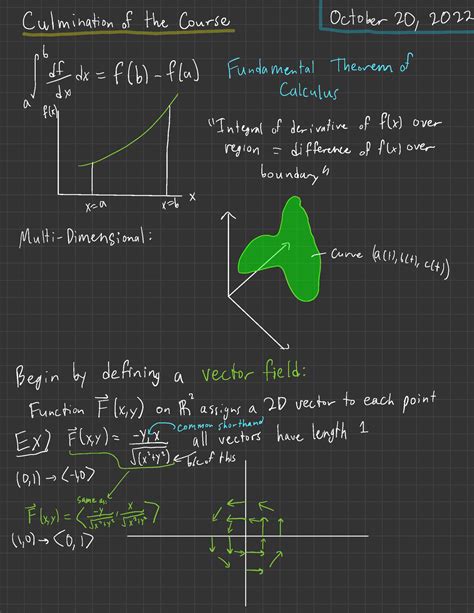 Culmination of the Course
October 20, 2022
∫_a^b df/dx dx = f(b) - f(a)
Fundamental Theorem of
Calculus
f(x)
x=a
x=b
x
"Integral of derivative of f(x) over
region = difference of f(x) over
boundary"
Multi-Dimensional:
curve (a(t), b(t), c(t))
Begin by defining a vector field:
Function F⃗(x,y) on ℝ² assigns a 2D vector to each point
common shorthand
Ex) F⃗(x,y) = -y, x / √(x²+y²) all vectors have length 1
b/c of this
(0,1) → <-1,0>
same as:
F⃗(x,y) = <-y/√(x²+y²), x/√(x²+y²)>
(1,0) → <0, 1>